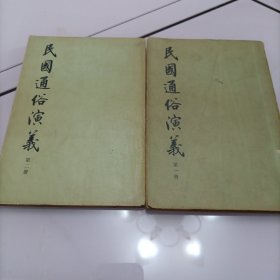 民國通俗演義
第二册
民國通俗演義
第一册